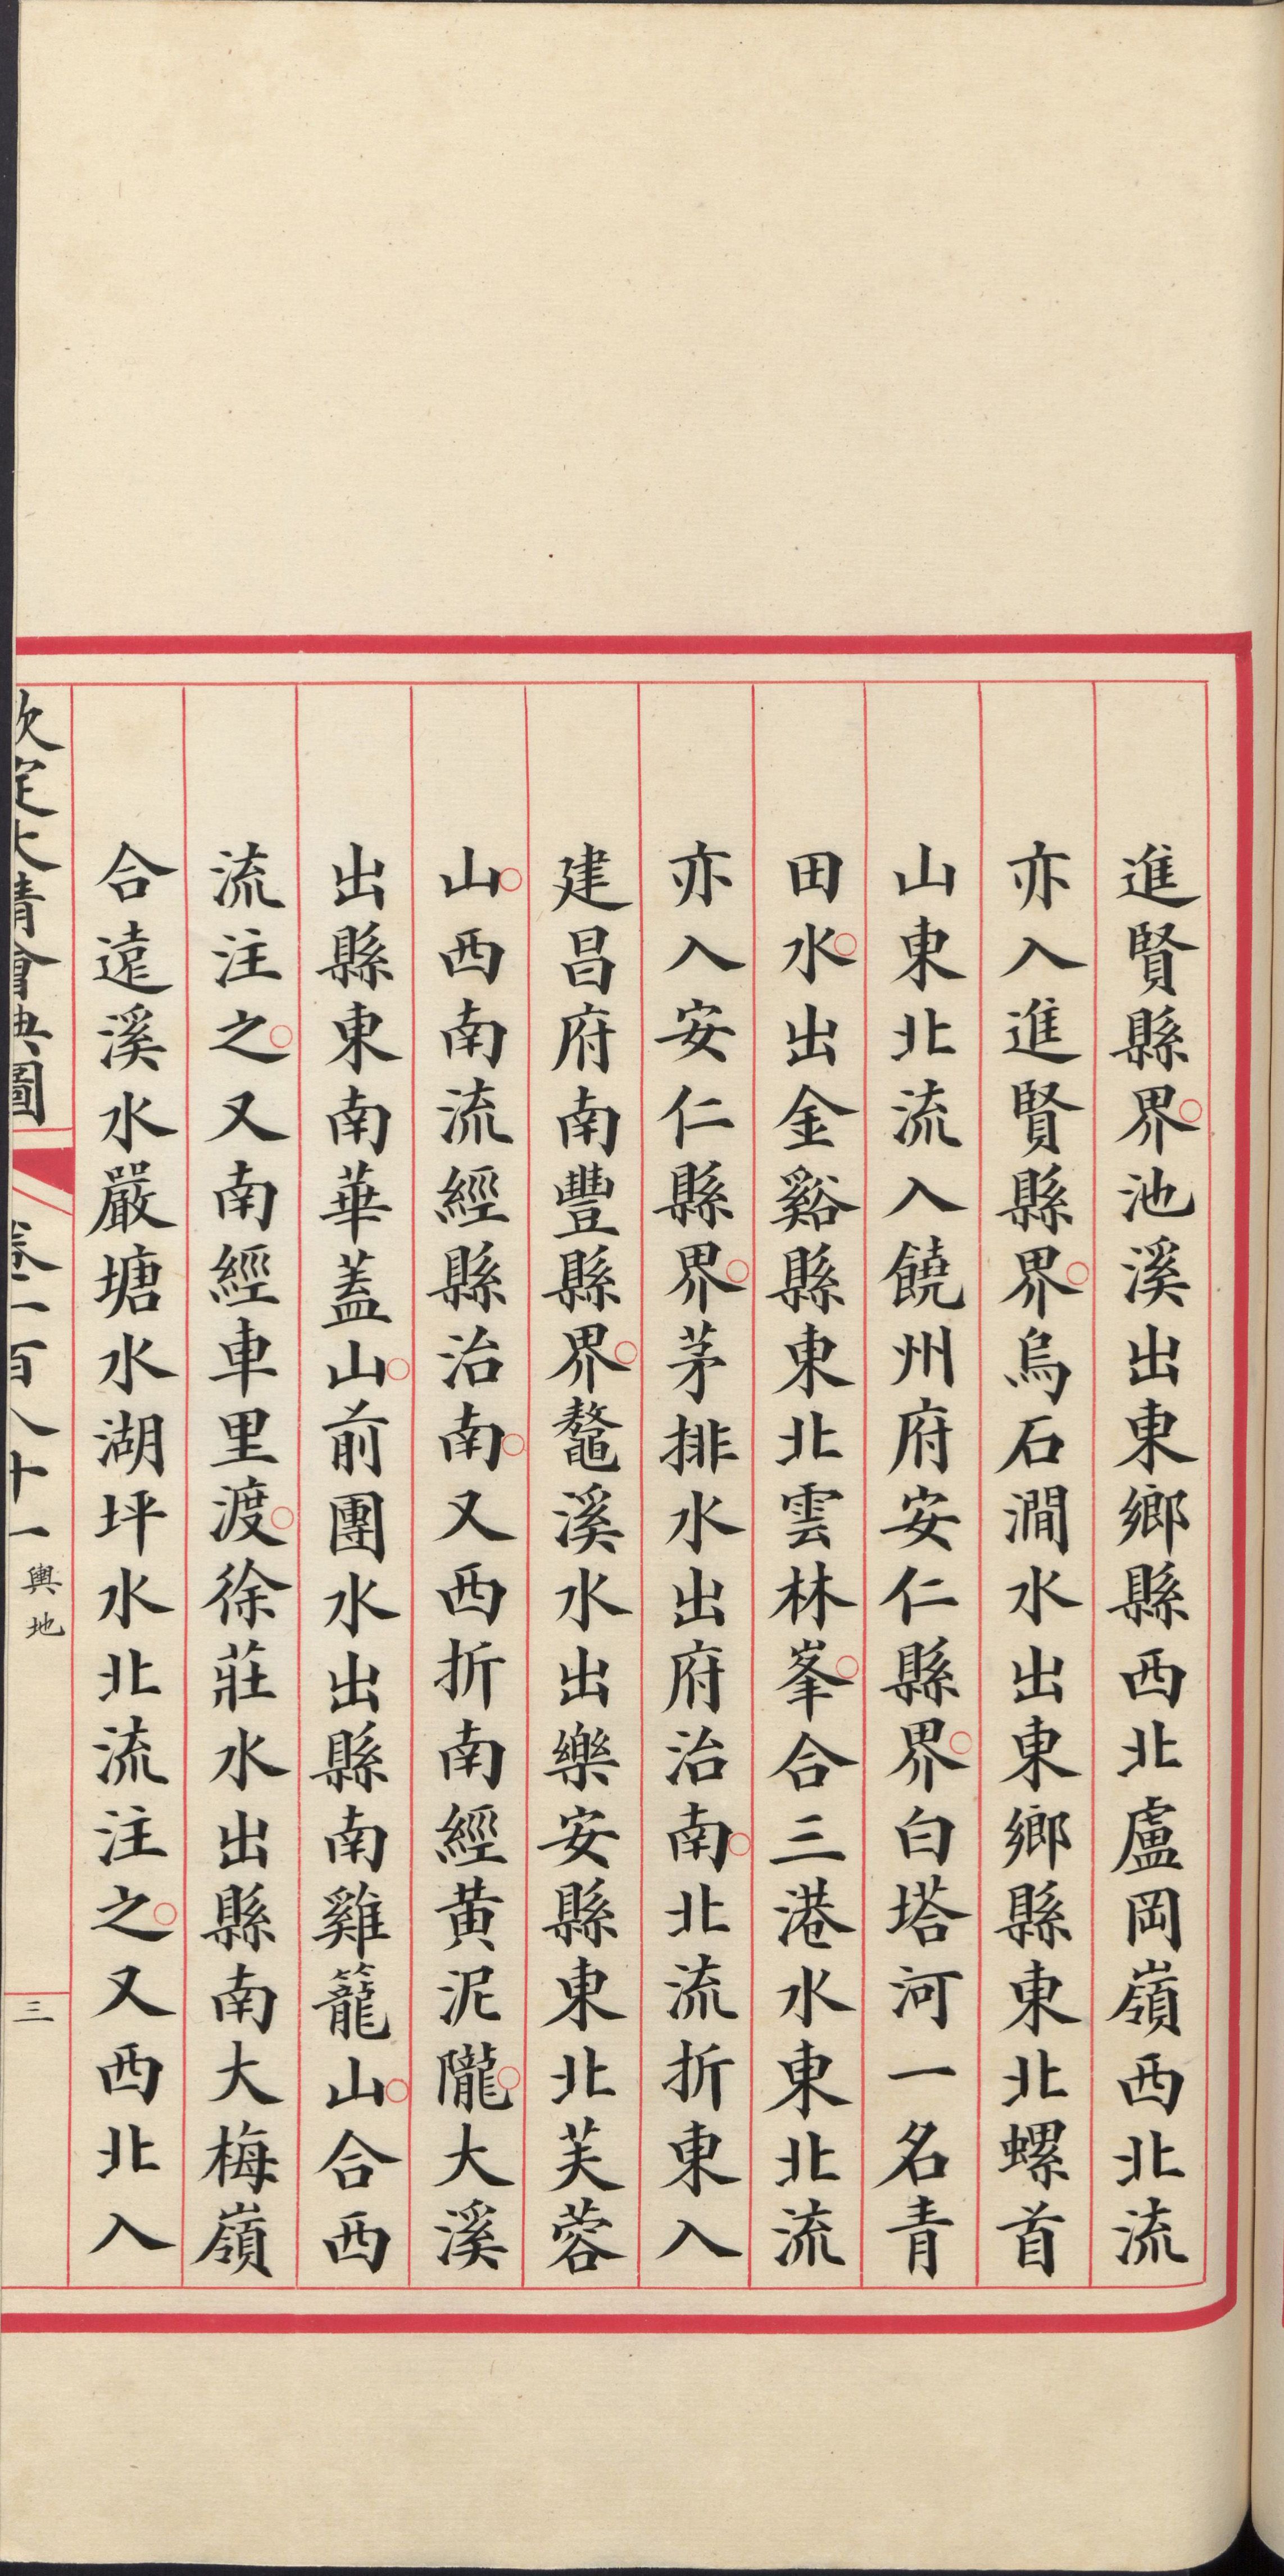 進賢縣界○池溪出東鄉縣西北盧岡嶺西北流
亦入進賢縣界○烏石澗水出東鄉縣東北螺首
山東北流入饒州府安仁縣界○白塔河一名青
田水○出金谿縣東北雲林峯○合三港水東北流
亦入安仁縣界○茅排水出府治南○北流折東入
建昌府南豐縣界○鼇溪水出樂安縣東北芙蓉
山○西南流經縣治南○又西折南經黃泥隴○大溪
出縣東南華蓋山○前團水出縣南雞籠山○合西
流注之○又南經車里渡○徐莊水出縣南大梅嶺
合遠溪水嚴塘水湖坪水北流注之○又西北入
欽定大清會典圖 卷一百八十一 輿地 三